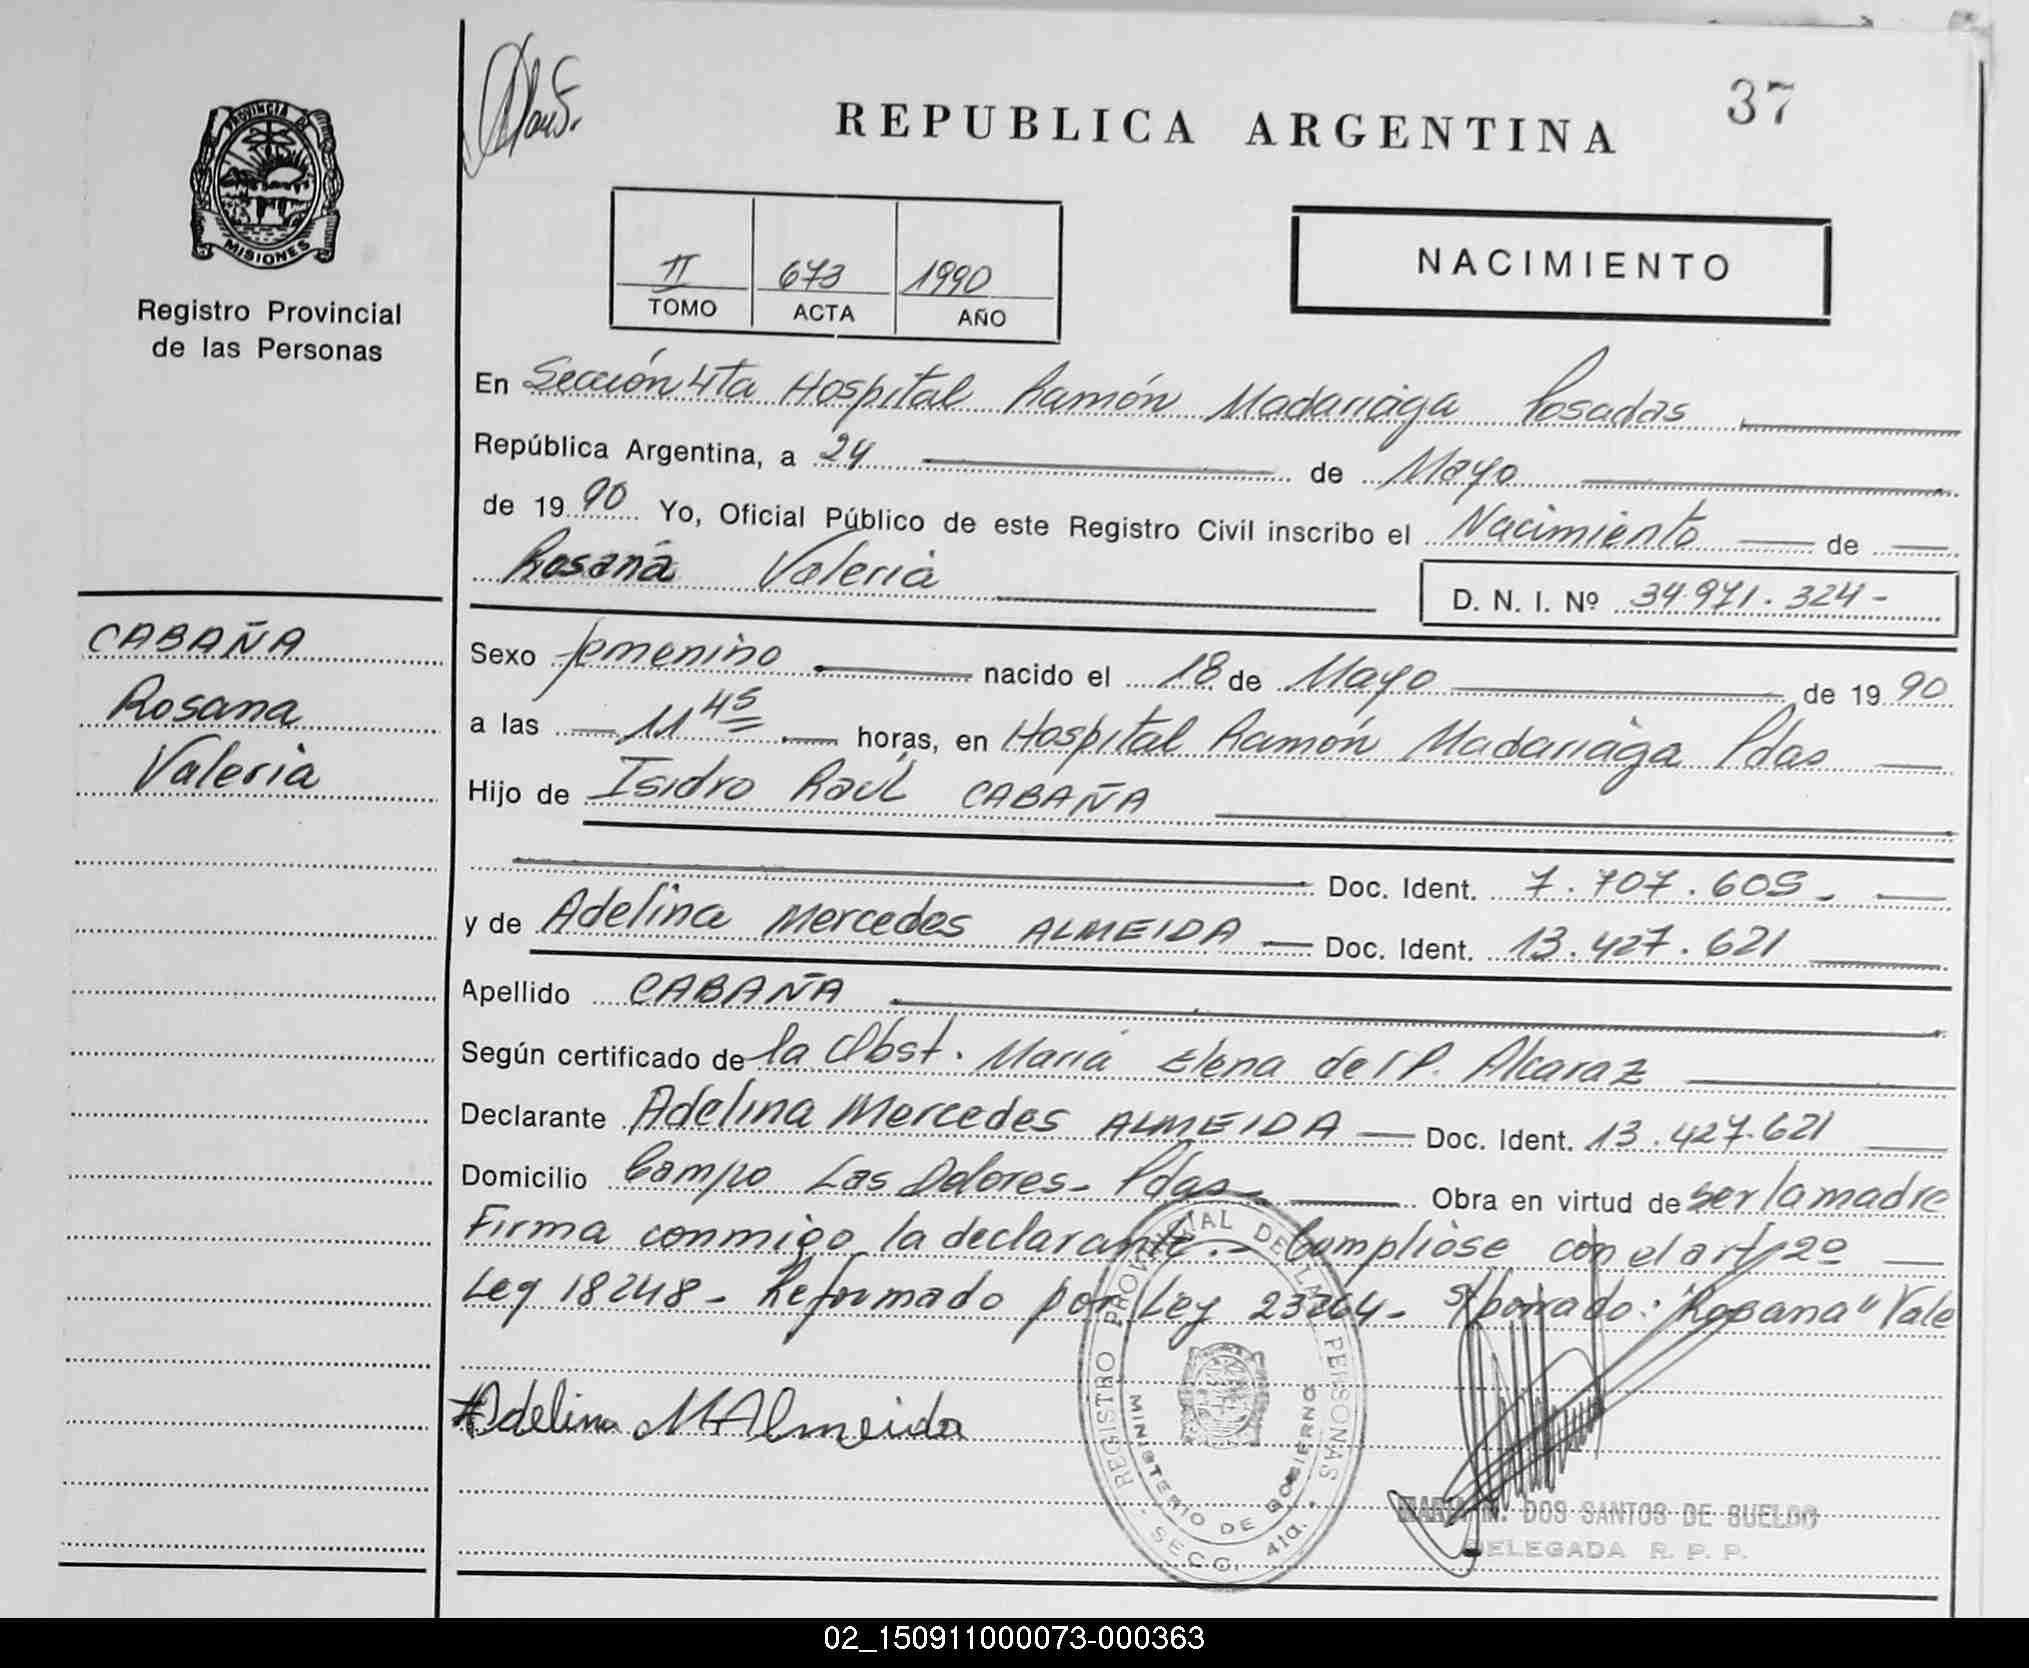 37
REPUBLICA ARGENTINA
PROVINCIA DE
MISIONES
Registro Provincial
de las Personas
II 673 1990
TOMO ACTA AÑO
NACIMIENTO
En Sección 4ta Hospital Ramón Madariaga Posadas
República Argentina, a 24 de Mayo
de 1990 Yo, Oficial Público de este Registro Civil inscribo el Nacimiento de
Rosana Valeria
D. N. I. Nº 34.971.324-
CABAÑA
Rosana
Valeria
Sexo femenino nacido el 18 de Mayo de 1990
a las 11 45 horas, en Hospital Ramón Madariaga Pdas
Hijo de Isidro Raúl CABAÑA
Doc. Ident. 7.707.605-
y de Adelina Mercedes ALMEIDA Doc. Ident. 13.427.621
Apellido CABAÑA
Según certificado de la Obst. María Elena del P. Alcaraz
Declarante Adelina Mercedes ALMEIDA Doc. Ident. 13.427.621
Domicilio Campo Las Dolores- Pdas- Obra en virtud de ser la madre
Firma conmigo la declarante.- Compliose con el art 2º
Ley 18248- Reformado por Ley 23264- s/borrado: "Rosana" Vale
Adelina M Almeida
REGISTRO PROVINCIAL DE LAS PERSONAS
MINISTERIO DE GOBIERNO
SECC. 4ta.
MARIA M. DOS SANTOS DE SUELDO
DELEGADA R. P. P.
02_150911000073-000363